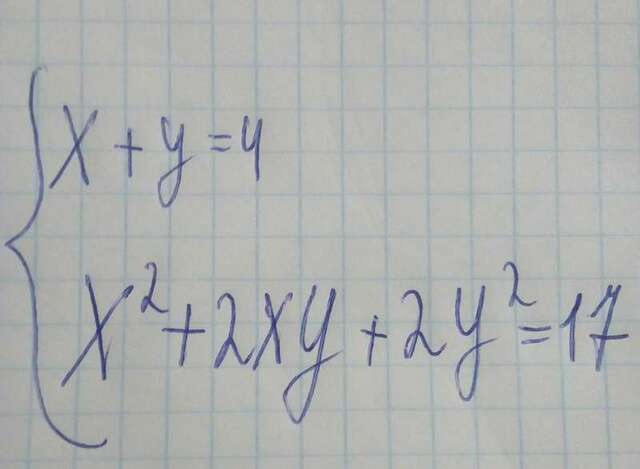 x + y = 4
x² + 2xy + 2y² = 17